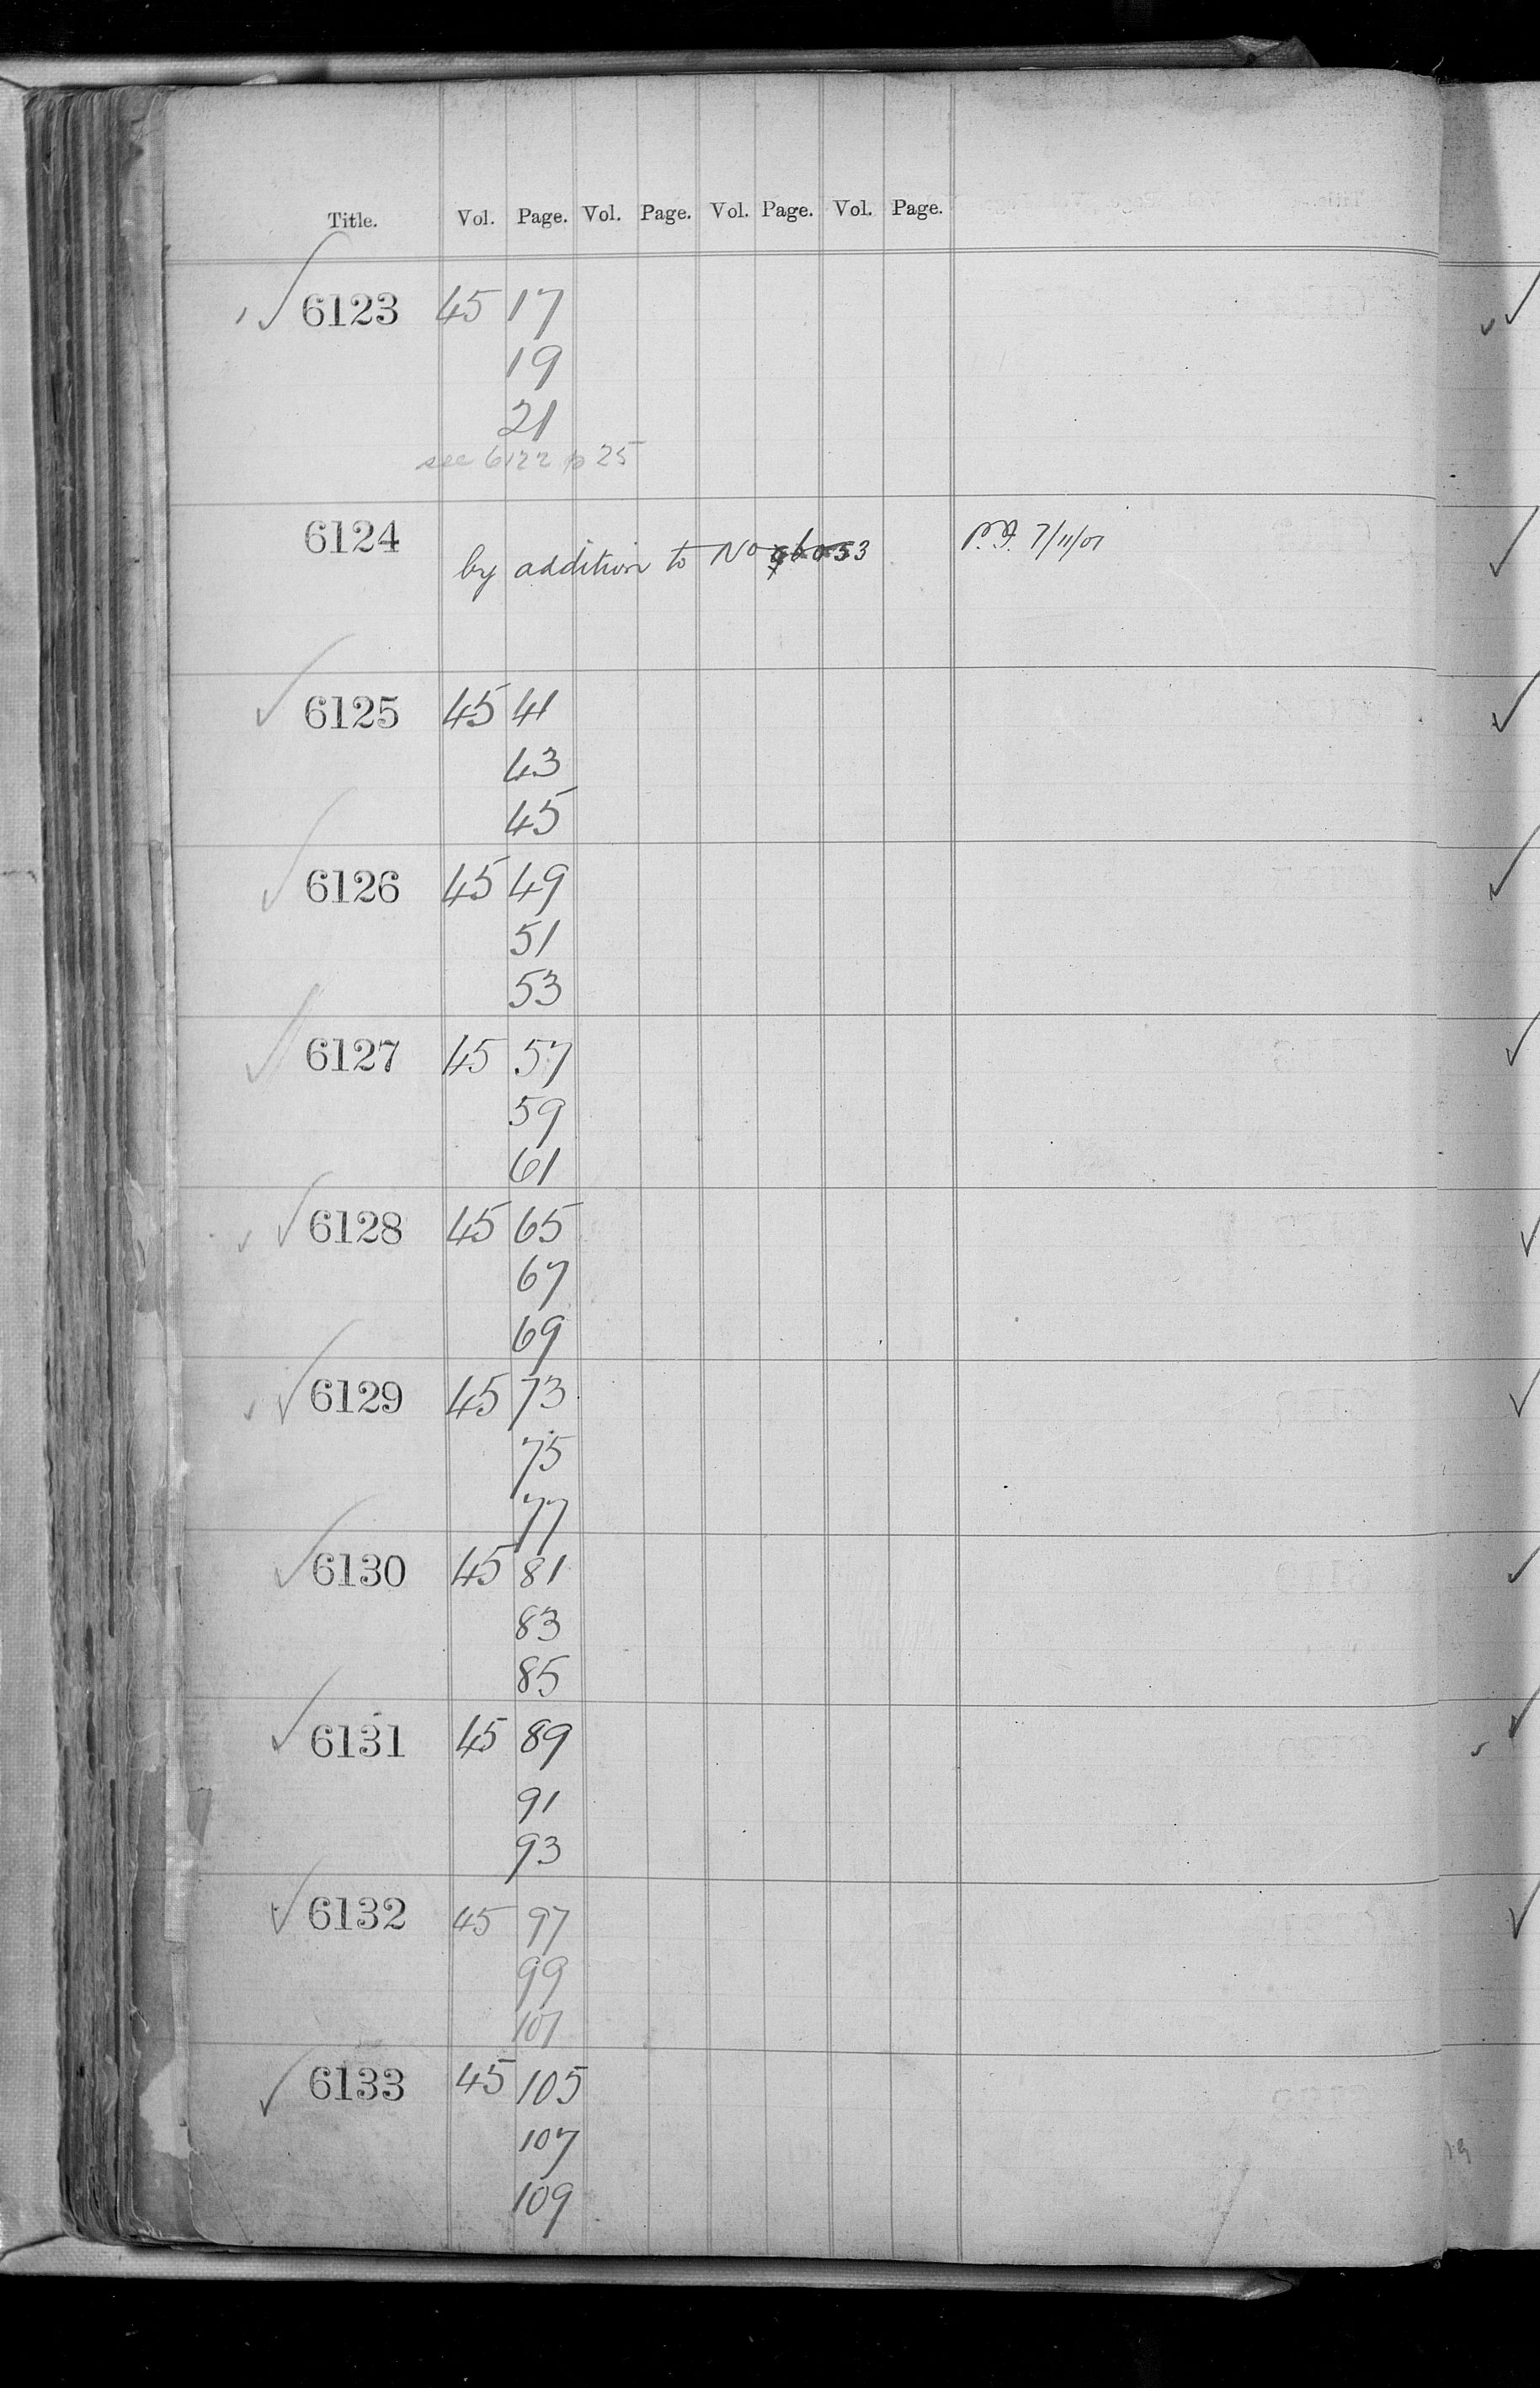 Title. Vol. Page. Vol. Page. Vol. Page. Vol. Page.
6123 45 17
19
21
see 6122 p 25
6124 by addition to No 6053 P.F. 7/11/01
6125 45 41
43
45
6126 45 49
51
53
6127 45 57
59
61
6128 45 65
67
69
6129 45 73
75
77
6130 45 81
83
85
6131 45 89
91
93
6132 45 97
99
101
6133 45 105
107
109